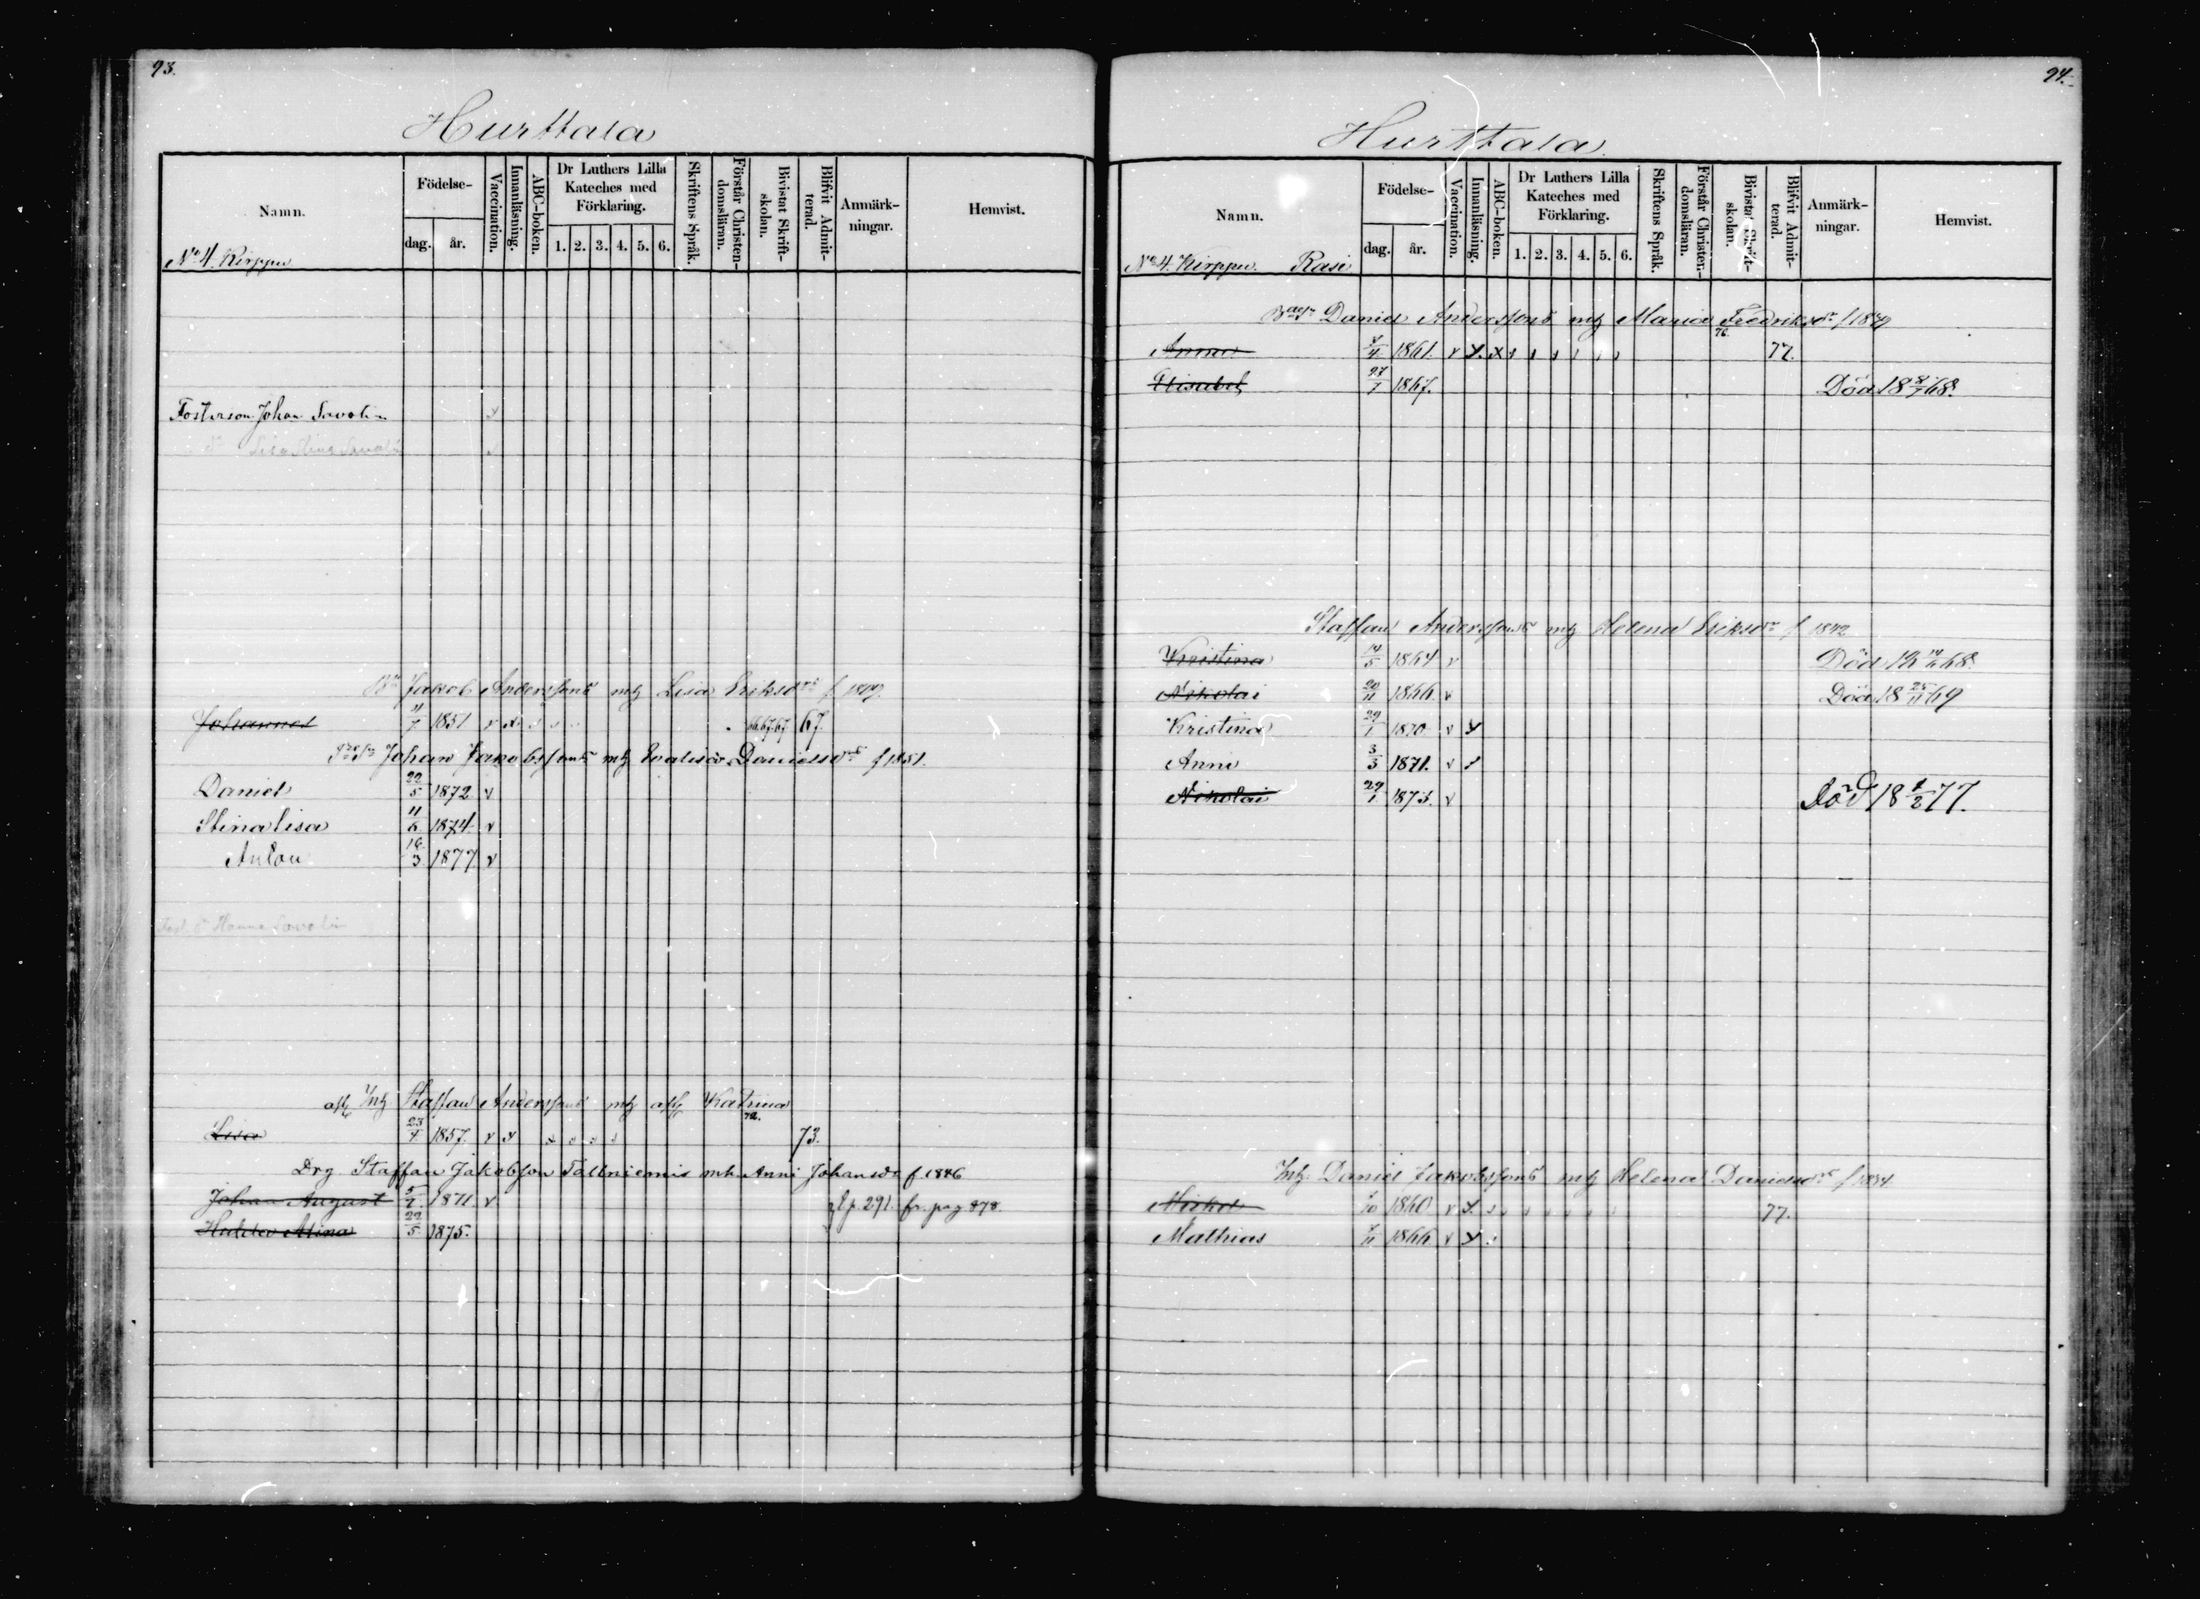 93.
Hurttala
Namn.
Födelse-
dag. år.
Vaccination.
Innanläsning.
ABC-boken.
Dr Luthers Lilla Kateches med Förklaring.
1. 2. 3. 4. 5. 6.
Skriftens Språk.
Förstår Christen-domsläran.
Bivistat Skrift-skolan.
Blifvit Admit-terad.
Anmärk-ningar.
Hemvist.
No 4. Kirppu
Fosterson Johan Savolin
Lisa Stina Savolin
Jakob Anderssons mh Lisa Eriksdr f. 1809.
Johannes 11/7 1851 66.67.67. 67.
Johan Jakobssons mh Evalisa Danielsdr f 1851.
Daniel 22/5 1872
Stinalisa 11/6 1874
Anton 16/3 1877
Hanna Savolin
Staffan Anderssons mh Katrina
Lisa 23/4 1857. 72. 73.
Drg. Staffan Jakobson Tallniemis mh Anni Johansdr f. 1846
Johan August 5/2 1871. p. 291. fr. pag 878.
Mina 29/5 1875.
94.
Hurttala.
Namn.
Födelse-
dag. år.
Vaccination.
Innanläsning.
ABC-boken.
Dr Luthers Lilla Kateches med Förklaring.
1. 2. 3. 4. 5. 6.
Skriftens Språk.
Förstår Christen-domsläran.
Bivistat Skrift-skolan.
Blifvit Admit-terad.
Anmärk-ningar.
Hemvist.
No 4. Kirppu. Rasi
Daniel Anderssons mh Maria Fredriksdr
Anna 1861. 76. 77.
Elisabet 27/1 1867. Död 18 8/7 68.
Staffan Anderssons mh Helena Eriksdr f 1842
Kristina 14/5 1864 Död 18 68.
Nikolai 20/11 1866 Död 18 25/11 69
Kristina 29/1 1870
Anni 3/3 1871.
Nikolai 29/1 1873. Död 18 1/2 77.
Inh. Daniel Jakobssons mh Helena Danielsdr f 1834
Mikel 1860 77.
Mathias 1866